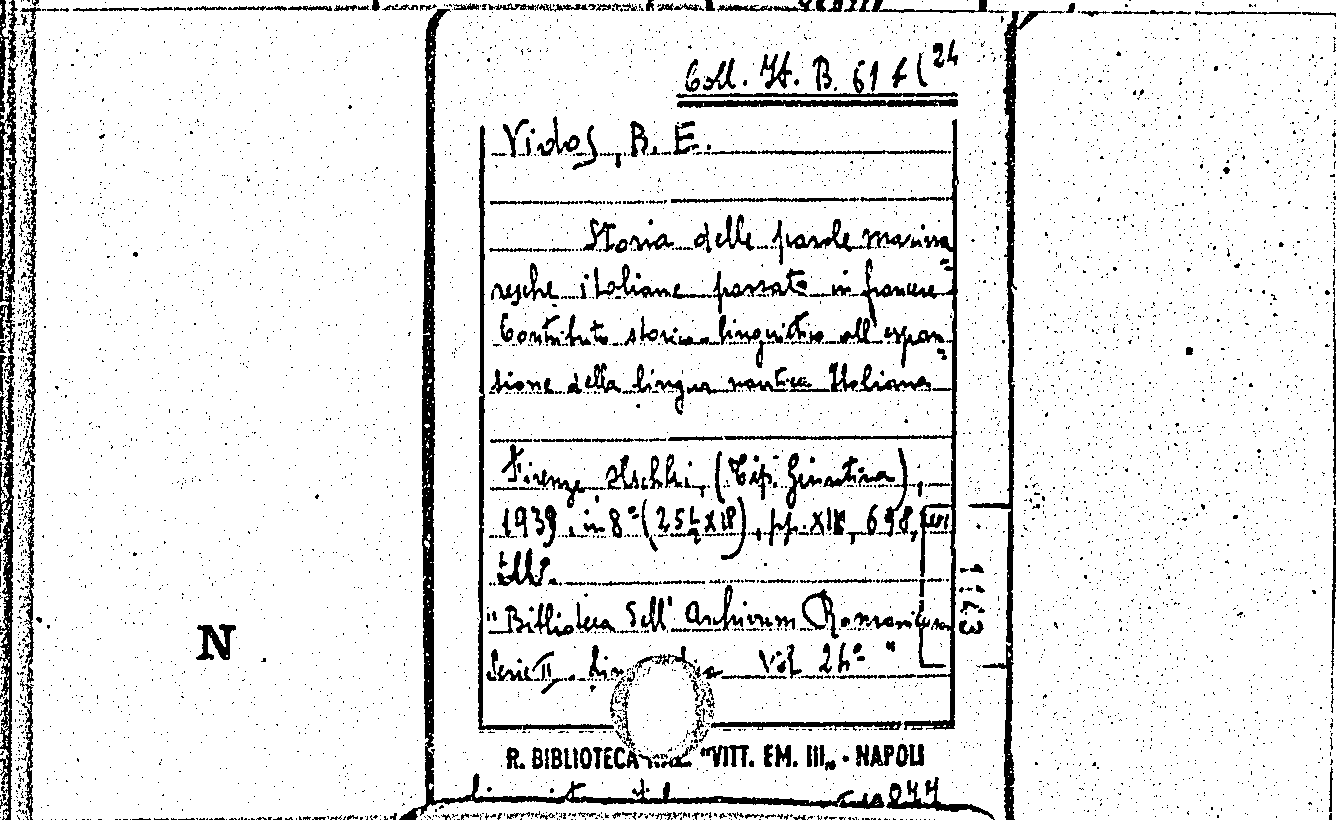 Coll. It. B. 61 f (24
Vidos, B. E.
Storia delle parole marina=
resche italiane passate in francese
Contributo storico-linguistico all'espan=
sione della lingua nautica Italiana
Firenze, Olschki, (Tip. Giuntina),
1939, in 8° (25½x18), pp. XII, 698,
ill.
"Biblioteca dell' Archivum Romanicum
Serie II. Vol. 24° "
N
R. BIBLIOTECA "VITT. EM. III„ - NAPOLI